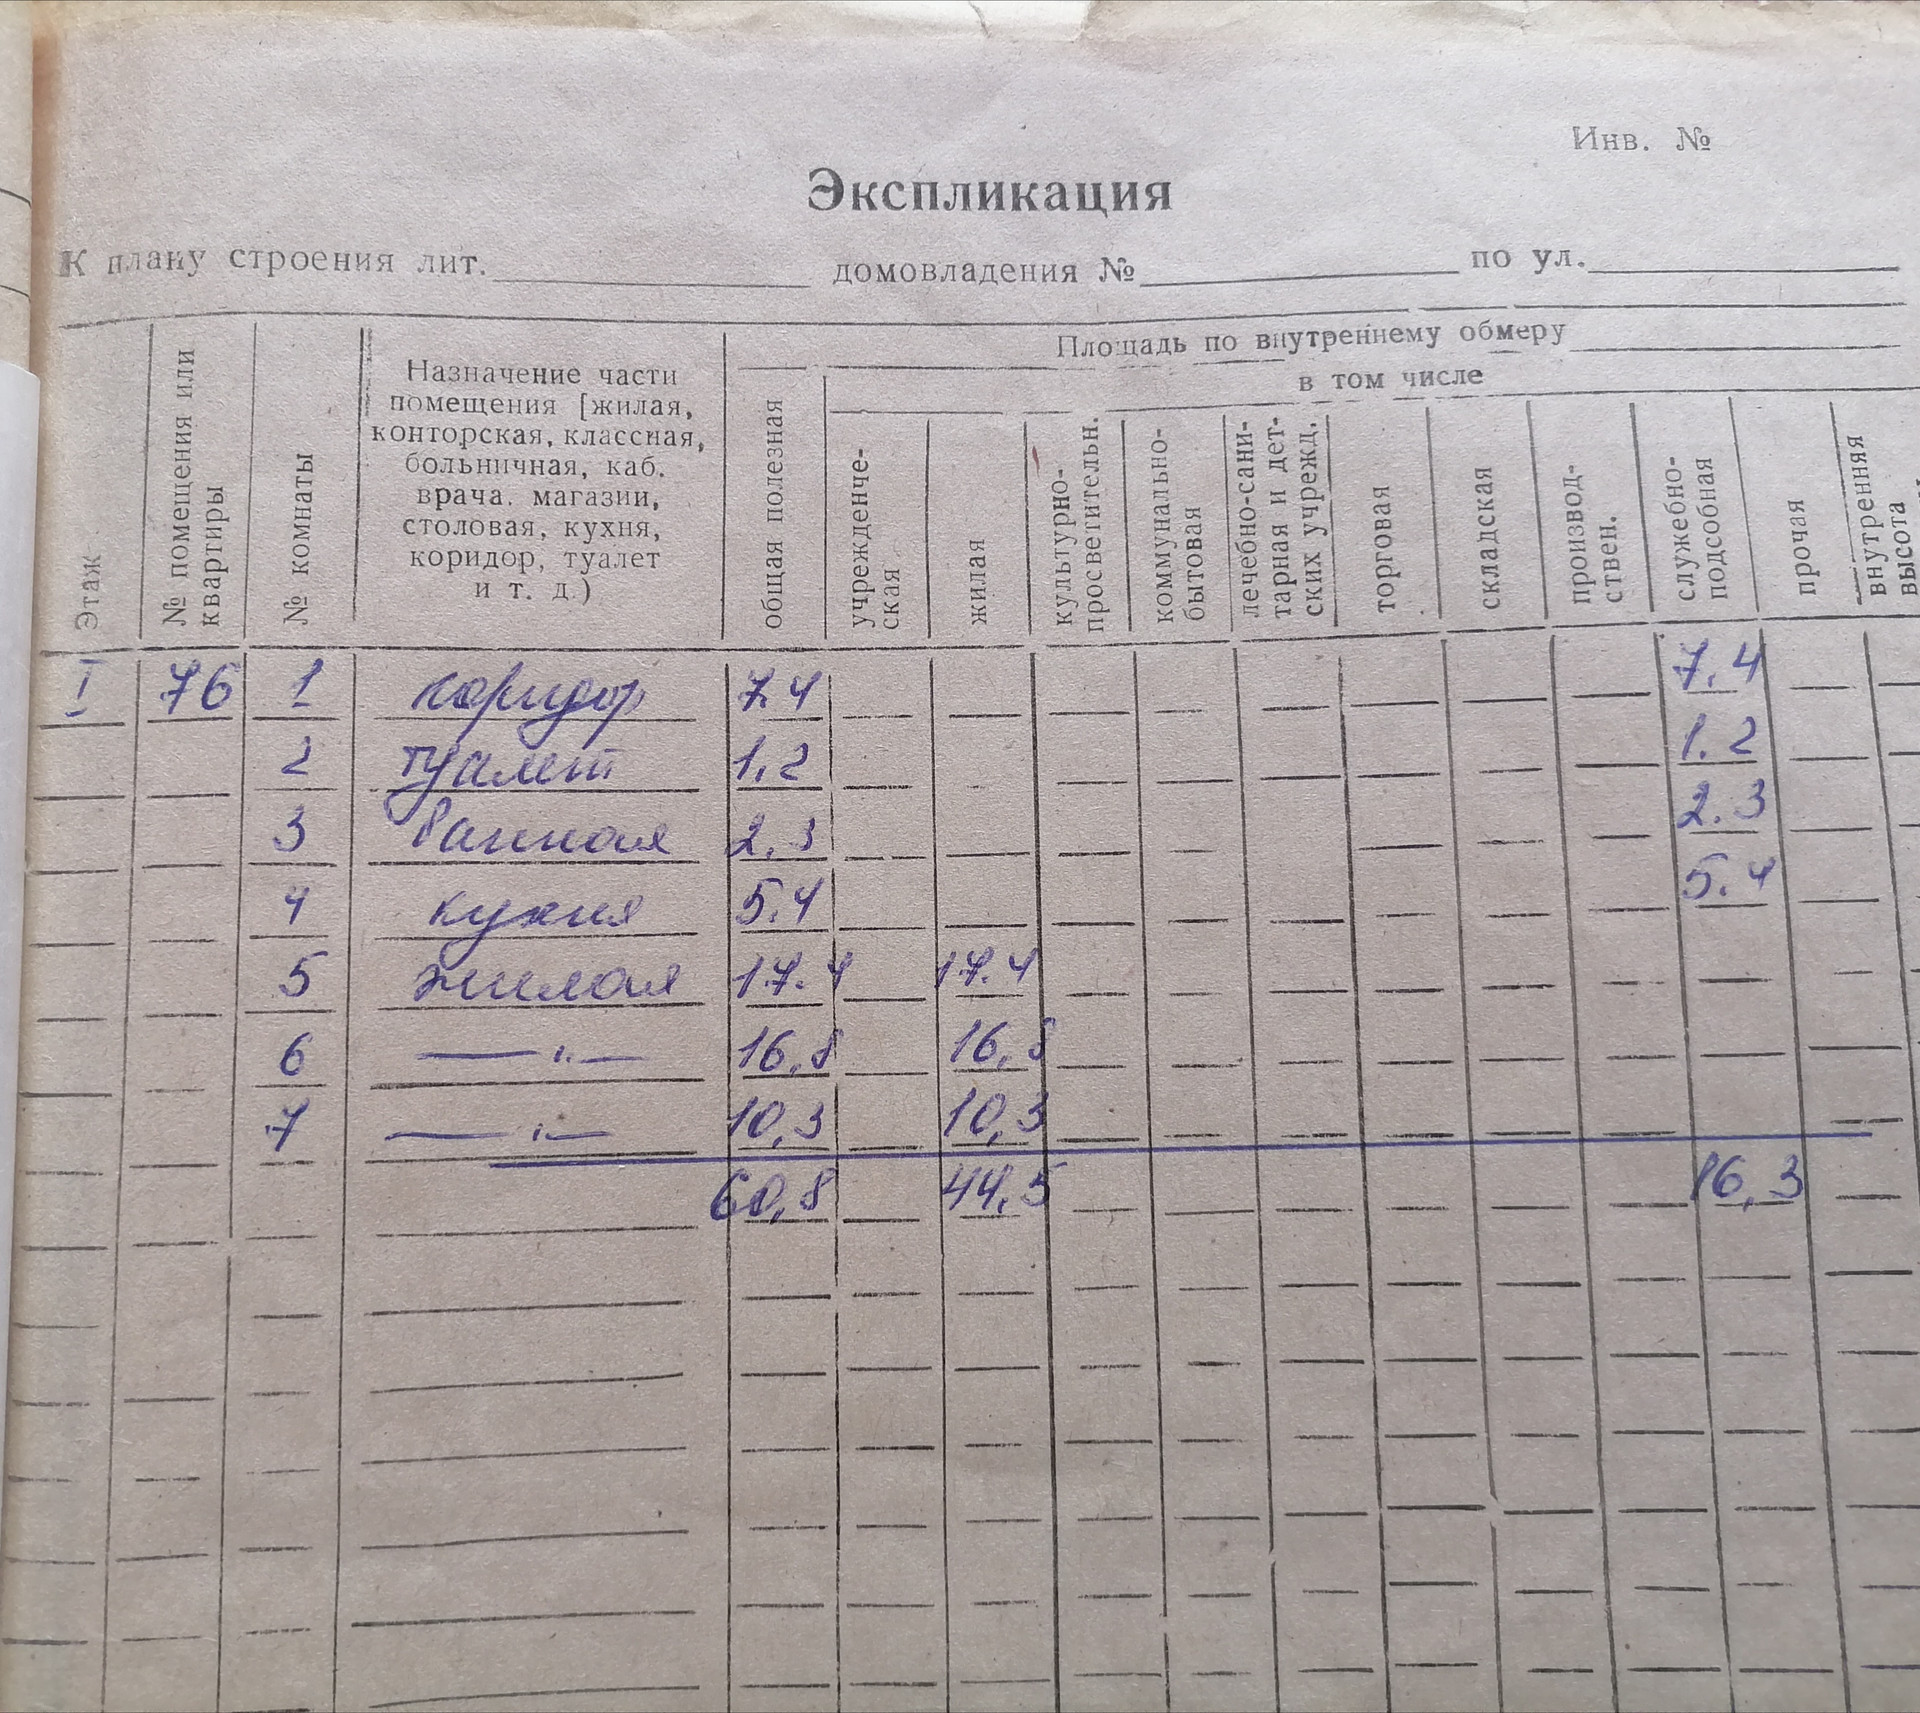 Инв. №
Экспликация
К плану строения лит. домовладения № по ул.
Площадь по внутреннему обмеру
в том числе
Этаж
№ помещения или
квартиры
№ комнаты
Назначение части
помещения [жилая,
конторская, классная,
больничная, каб.
врача. магазии,
столовая, кухня,
коридор, туалет
и т. д.)
общая полезная
учрежденче-
ская
жилая
культурно-
просветительн.
коммунально-
бытовая
лечебно-сани-
тарная и дет-
ских учрежд.
торговая
складская
производ-
ствен.
служебно-
подсобная
прочая
внутренняя
высота
I 76 1 коридор 7.4 7.4
2 туалет 1,2 1.2
3 ванная 2.3 2.3
4 кухня 5.4 5.4
5 жилая 17.4 17.4
6 —"— 16,8 16,8
7 —"— 10,3 10,3
60,8 44,5 16,3